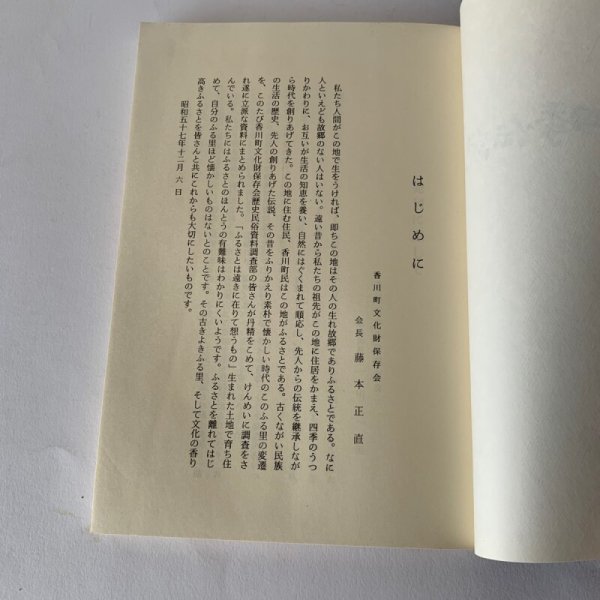 はじめに
香川町文化財保存会
会長 藤本正直
私たち人間がこの地で生をうければ、即ちこの地はその人の生れ故郷でありふるさとである。なに
人といえども故郷のない人はいない。遠い昔から私たちの祖先がこの地に住居をかまえ、四季のうつ
りかわりに、お互いが生活の知恵を養い、自然にはぐくまれて順応し、先人からの伝統を継承しなが
ら時代を創りあげてきた。この地に住む住民、香川町民はこの地がふるさとである。古くながい民族
の生活の歴史、先人の創りあげた伝説、その昔をふりかえり素朴で懐かしい時代のこのふる里の変遷
を、このたび香川町文化財保存会歴史民俗資料調査部の皆さんが丹精をこめて、けんめいに調査をさ
れ遂に立派な資料にまとめられました。「ふるさとは遠きに在りて想うもの」生まれた土地で育ち住
んでいる。私たちにはふるさとのほんとうの有難味はわかりにくいようです。ふるさとを離れてはじ
めて、自分のふる里ほど懐かしいものはないとのことです。その古きよきふる里、そして文化の香り
高きふるさとを皆さんと共にこれからも大切にしたいものです。
昭和五十七年十二月六日